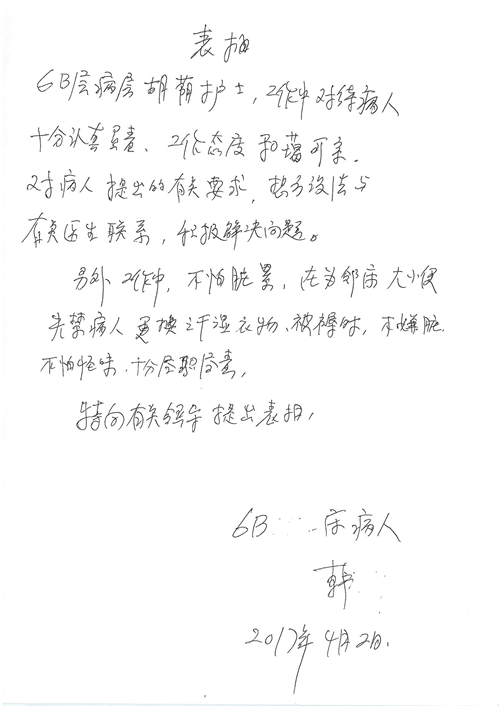 表扬
6B层病房胡萌护士,工作中对待病人
十分认真负责、工作态度和蔼可亲.
对病人提出的有关要求,想方设法与
有关医生联系,积极解决问题。
另外工作中,不怕脏累,在为邻床大小便
失禁病人更换干湿衣物、被褥时,不嫌脏
不怕怪味、十分尽职尽责,
特向有关领导提出表扬,
6B 床病人
韩
2017年4月2日.